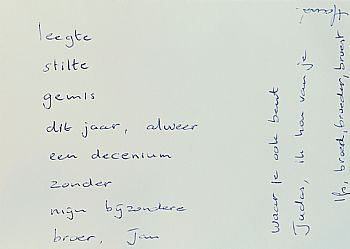 leegte
stilte
gemis
dit jaar, alweer
een decenium
zonder
mijn bijzondere
broer, Jan
Waar je ook bent
Judas, ik hou van je
broed, broeder, broest